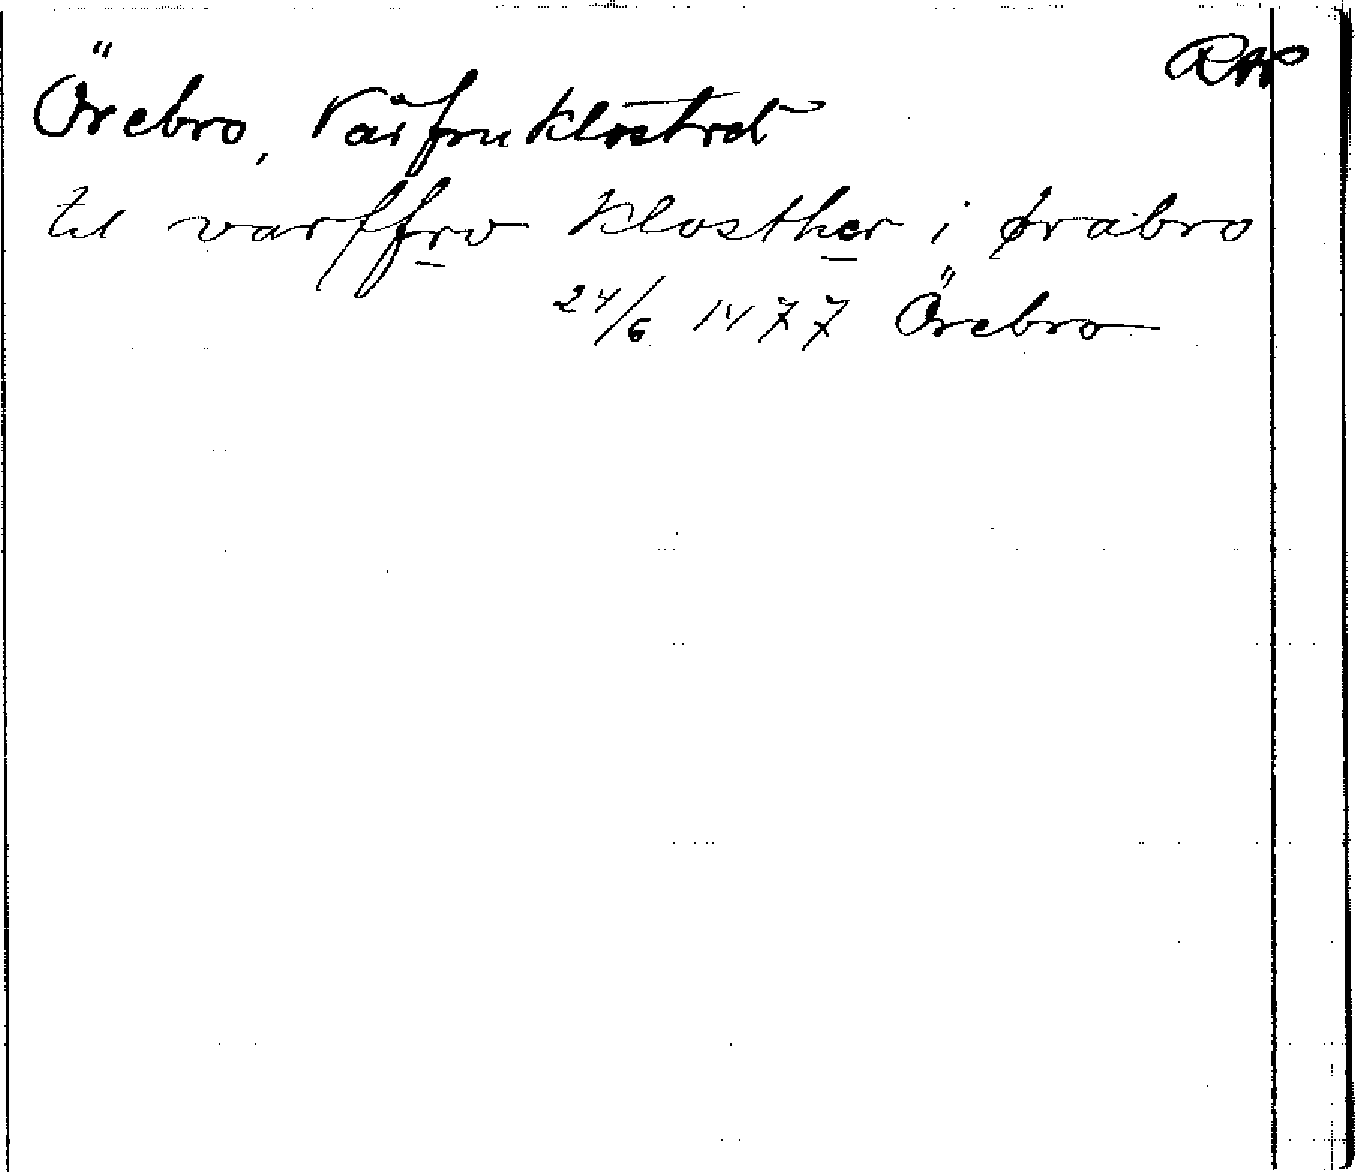 RAP
Örebro, Vårfruklostret
til varffrv klosther i ørabro
24/6 1477 Örebro